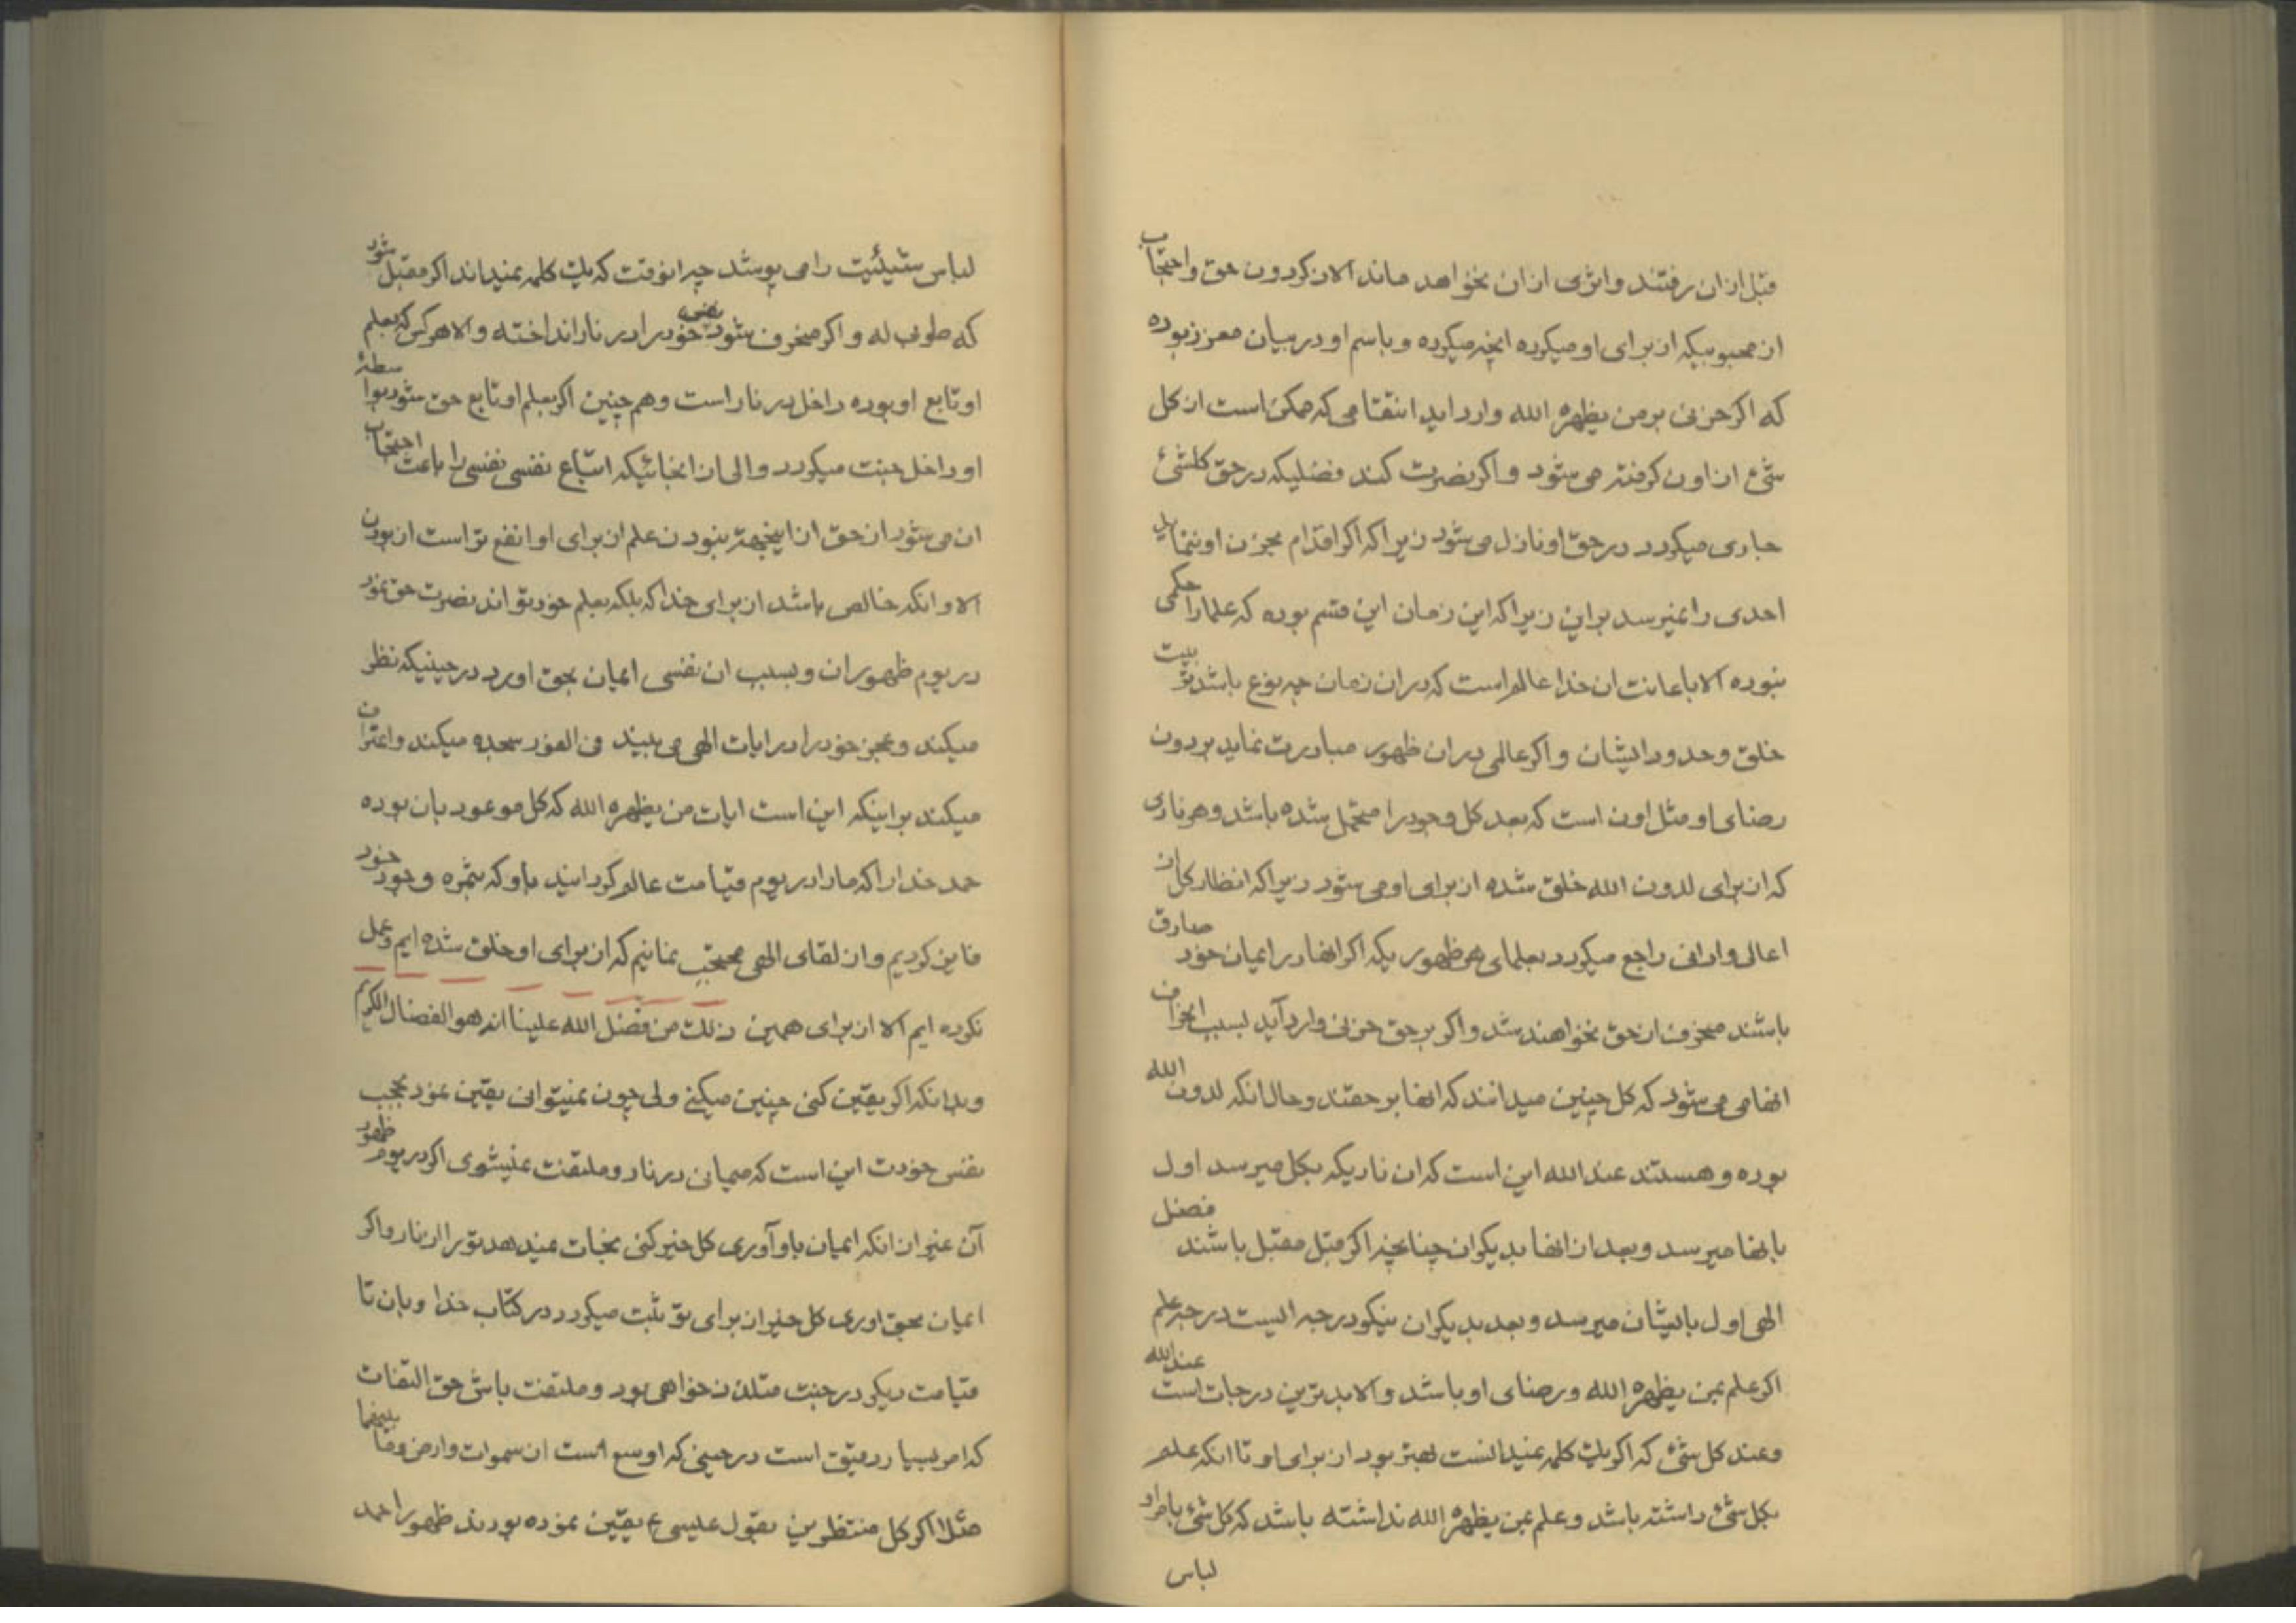 قبل از ان رفتند واثری از ان نخواهد ماند الا ذکر دون حق واحتجاب
از محبوبیکه از برای او میکرده انچه میکرده و باسم او در بیان معزز بوده
که اگر حزنی بر من یظهره الله وارد اید انتقامی که ممکن است از کل
شیء از اون گرفته می شود و اگر نصرت کند فضلیکه در حق کلشیء
جاری میگردد در حق او نازل می شود زیرا که اگر اقدام بحزن او ننماید
احدی را نمیرسد براین زیرا که این زمان این قسم بوده که علما را حکمی
نبوده الا باعانت ان خدا عالم است که در ان زمان چه نوع باشد تربیت
خلق و حدود ایشان و اگر عالمی در ان ظهور مبادرت نماید بر دون
رضای او مثل اون است که بعد کل وجود را متحمل شده باشد وهر ناری
که از برای لدون الله خلق شده از برای او می شود زیرا که انظار کل از
اعالی وادانی راجع میگردد بعلمای هر ظهور یکه اگر انها در ایمان خود صادق
باشند منحرف از حق نخواهند شد و اگر بر حق حزنی وارد آید بسبب انحراف
انهامی می شود که کل چنین میدانند که انها بر حقند و حال انکه لدون الله
بوده و هستند عند الله این است که ان ناریکه بکل میرسد اول
بانها میرسد و بعد از انها بدیگران چنانچه اگر قبل مقبل باشند فضل
الهی اول بایشان میرسد و بعد بدیگران نیکو درجه ایست درجه علم
اگر علم بمن یظهره الله و رضای او باشد و الا بدترین درجات است عند الله
وعند کل شیء که اگر یک کلمه نمیدانست بهتر بود از برای او تا انکه علم
بکل شیء داشته باشد و علم بمن یظهره الله نداشته باشد که کل شیء باقرار او
لباس
لباس شیئیت را می پوشد چرا نوقت که یک کلمه نمیداند اگر مقبل شود
که طوبی له و اگر منحرف شود نفس خود را در نار انداخته والا هر کس که بعلم
او تابع او بوده داخل در نار است وهم چنین اگر بعلم او تابع حق شود بواسطهٔ
او داخل جنت میگردد والی از انجائیکه اتباع نفسی نفسی را باعث احتجاب
ان می شود از حق از اینجهة نبودن علم از برای او انفع تر است از بودن
الا و انکه خالص باشد از برای خدا که بلکه بعلم خود تواند نصرت حق نمود
در یوم ظهور ان و بسبب ان نفسی ایمان بحق اورد در حینیکه نظر
میکند و عجز خود را در ایات الهی می بیند فی الفور سجده میکند و اعتراف
میکند براینکه این است ایات من یظهره الله که کل موعود بان بوده
حمد خدا را که ما را در یوم قیامت عالم گردانید باو که بثمره وجود خود
فایز گردیم و از لقای الهی محتجب نمانیم که از برای او خلق شده ایم وعمل
نکرده ایم الا از برای همین ذلک من فضل الله علینا انه هو الفضال الکریم
وبدانکه اگر یقین کنی چنین میکنی ولی چون نمیتوانی یقین نمود بحجب
نفس خودت این است که میمانی در نار و ملتفت نمیشوی اگر در یوم ظهور
آن غیر از انکه ایمان باو آوری کل خیر کنی نجات نمیدهد تورا از نار واگر
ایمان بحق اوری کل خیر از برای تو ثبت میگردد در کتاب خدا وبان تا
قیامت دیگر در جنت متلذذ خواهی بود و ملتفت باش حق التفات
که امر بسیار دقیق است در حینی که اوسع است از سموات وارض وما بینهما
مثلا اگر کل منتظرین بقول عیسی ع یقین نموده بودند ظهور احمد